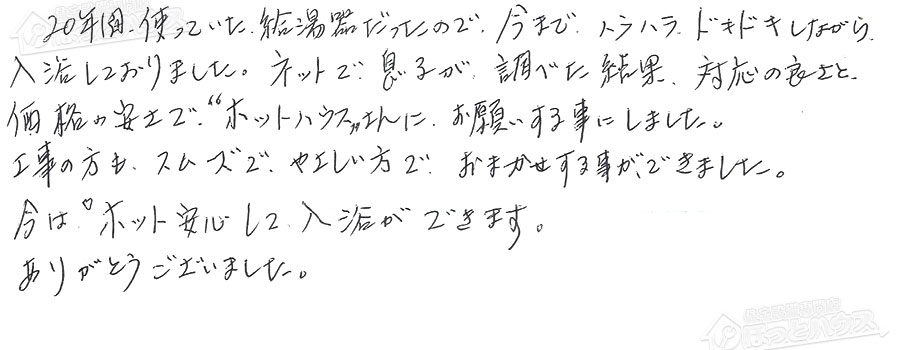 20年間、使っていた給湯器だったので、今まで、ハラハラドキドキしながら、
入浴しておりました。ネットで息子が、調べた結果、対応の良さと、
価格の安さで、“ホットハウス”さんに、お願いする事にしました。
工事の方も、スムーズで、やさしい方で、おまかせする事が、できました。
今は、♡ホット安心して、入浴ができます。
ありがとうございました。
ほっとハウス